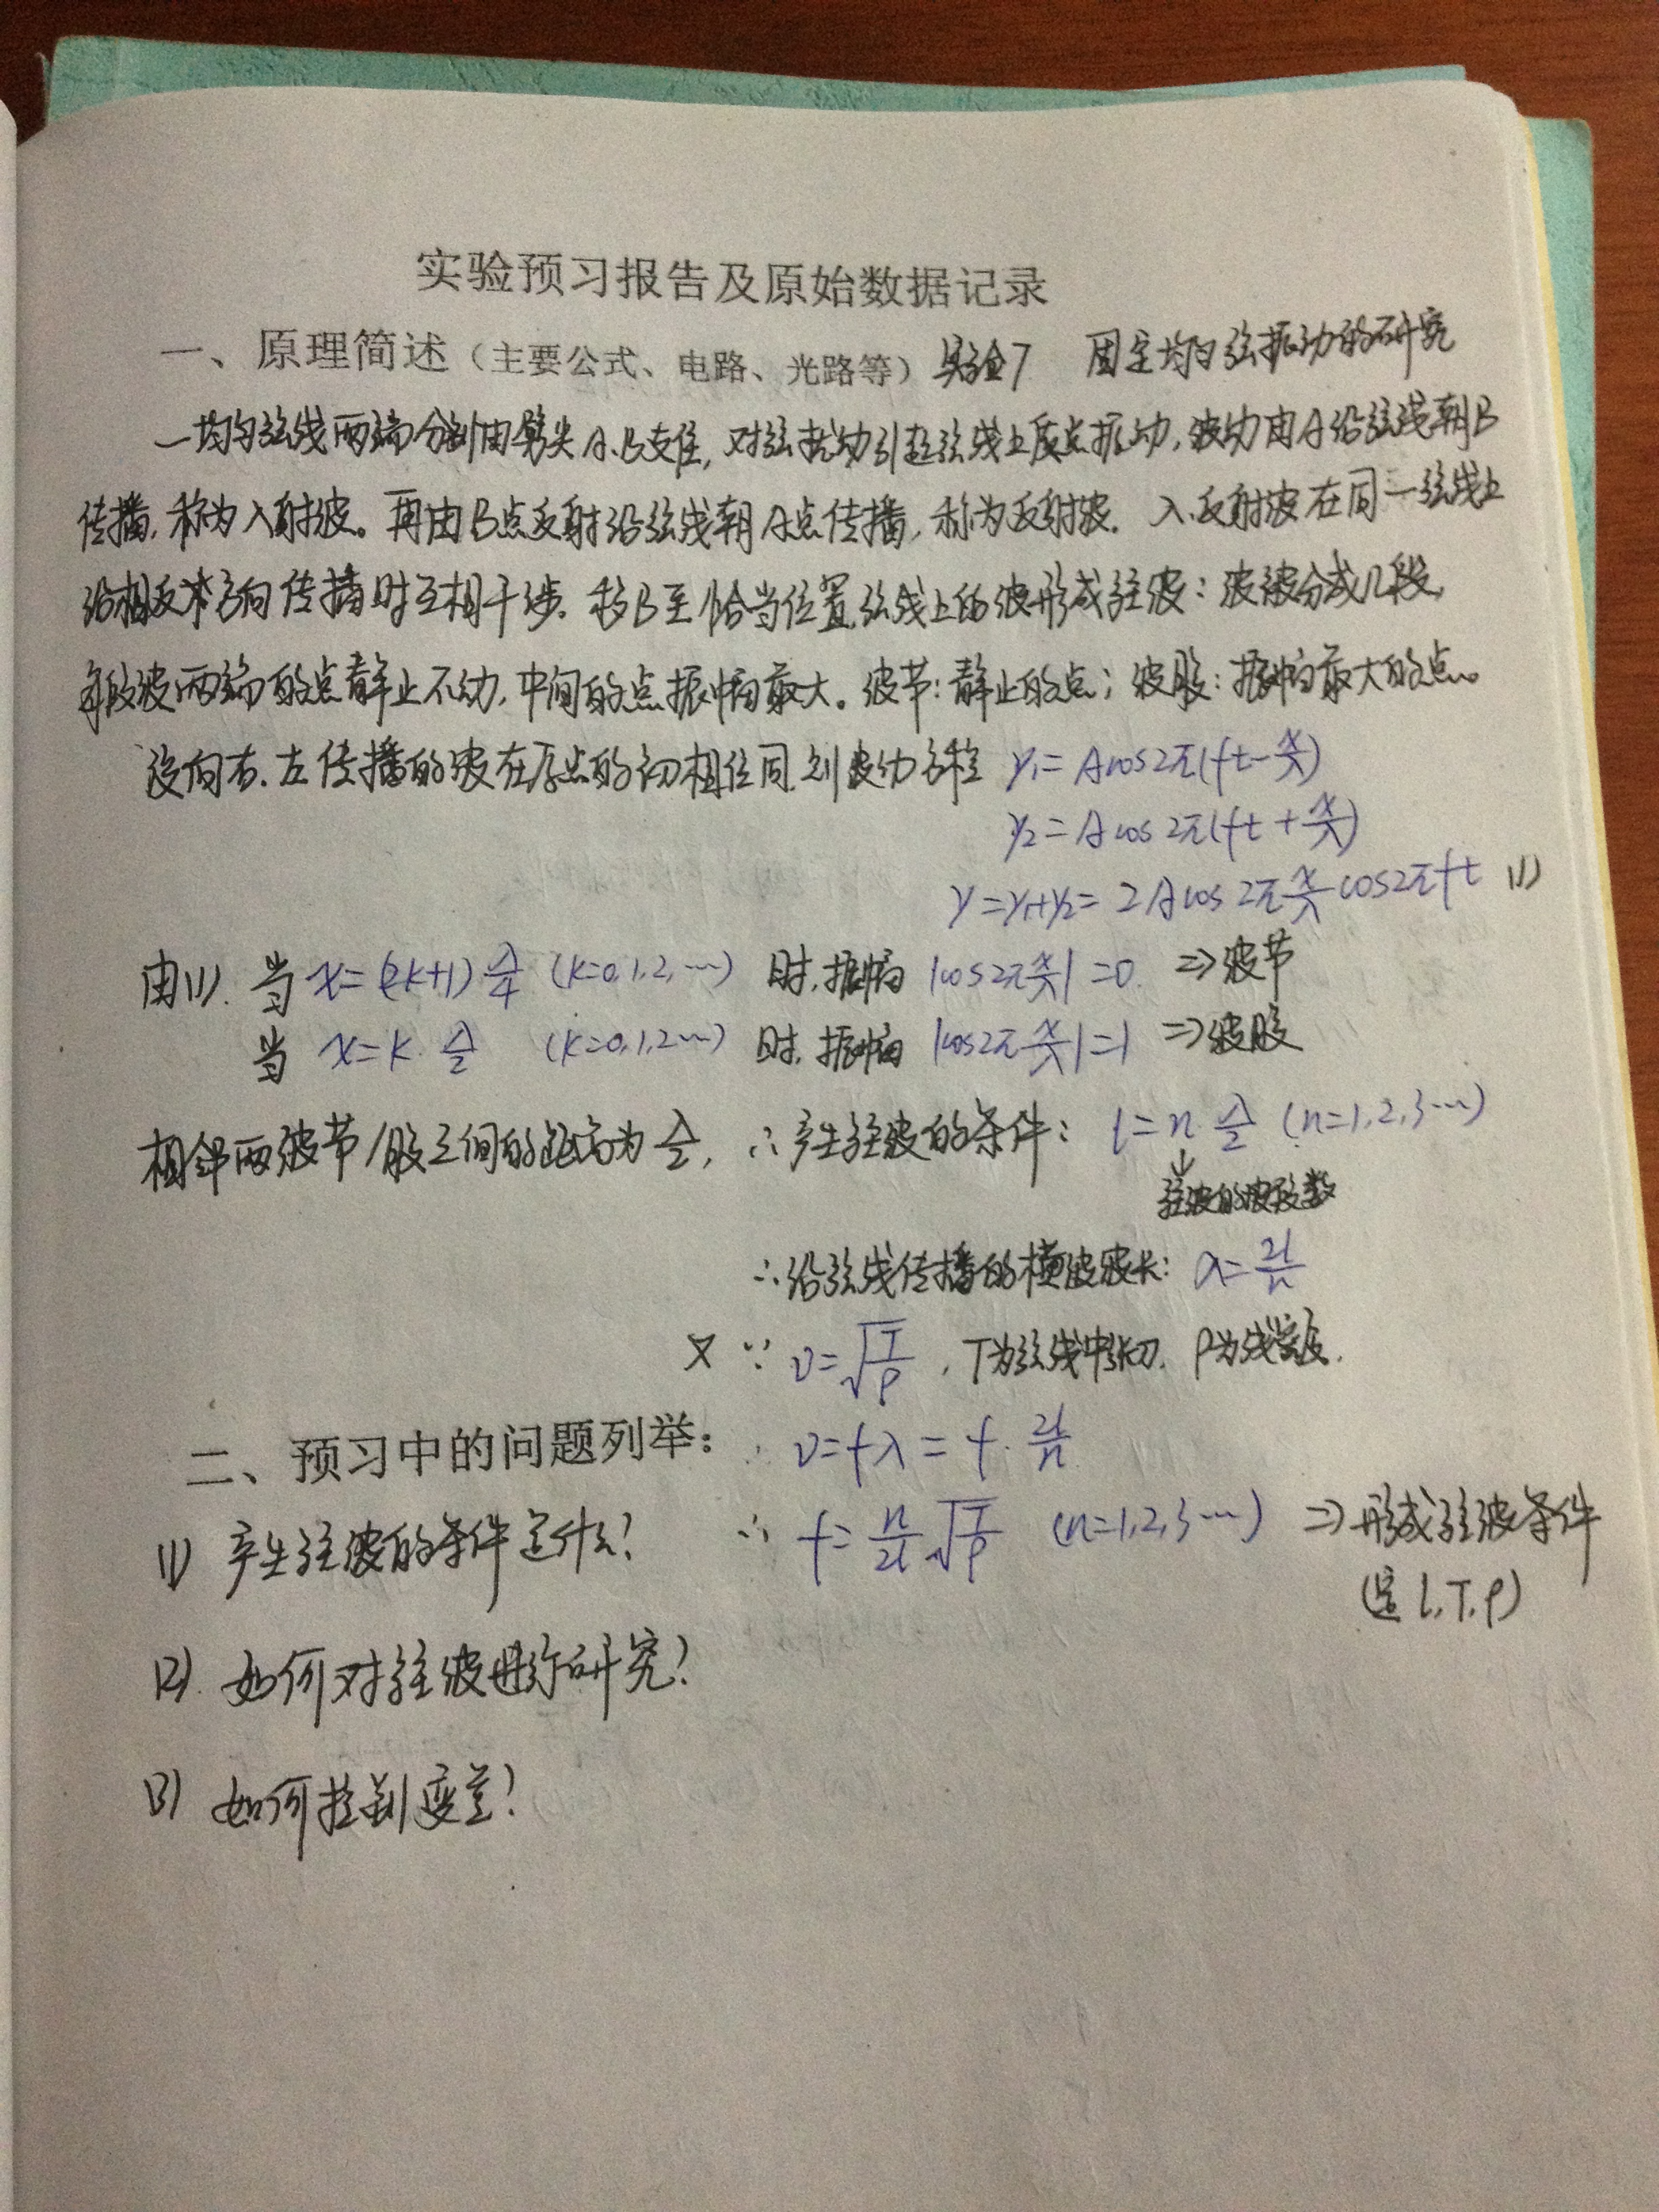 实验预习报告及原始数据记录
一、原理简述（主要公式、电路、光路等）实验7 固定均匀弦振动的研究
一均匀弦线两端分别由劈尖A、B支住，对弦扰动引起弦线上质点振动，波动由A沿弦线朝B
传播，称为入射波。再由B点反射沿弦线朝A点传播，称为反射波。入、反射波在同一弦线上
沿相反方向传播时互相干涉，移B至恰当位置，弦线上的波形成驻波：波被分成几段，
每段波两端的点静止不动，中间的点振幅最大。波节：静止的点；波股：振幅最大的点。
设向右、左传播的波在原点的初相位同，则波动方程 y₁=Acos2π(ft-x/λ)
y₂=Acos2π(ft+x/λ)
y=y₁+y₂=2Acos2π x/λ cos2πft (1)
由(1). 当 x=(2k+1)λ/4 (k=0,1,2,…) 时，振幅 |cos2π x/λ|=0. ⇒波节
当 x=k·λ/2 (k=0,1,2…) 时，振幅 |cos2π x/λ|=1 ⇒波股
相邻两波节/股之间的距离为λ/2，∴产生驻波的条件：l=n·λ/2 (n=1,2,3…)
↓
驻波的波段数
∴沿弦线传播的横波波长：λ=2l/n
又∵ v=√(T/ρ)，T为弦线中张力，ρ为线密度.
二、预习中的问题列举： v=fλ=f·2l/n
(1) 产生驻波的条件是什么？ ∴ f=n/2l √(T/ρ) (n=1,2,3…) ⇒形成驻波条件
(定 l,T,ρ)
(2). 如何对驻波进行研究？
(3) 如何控制变量？